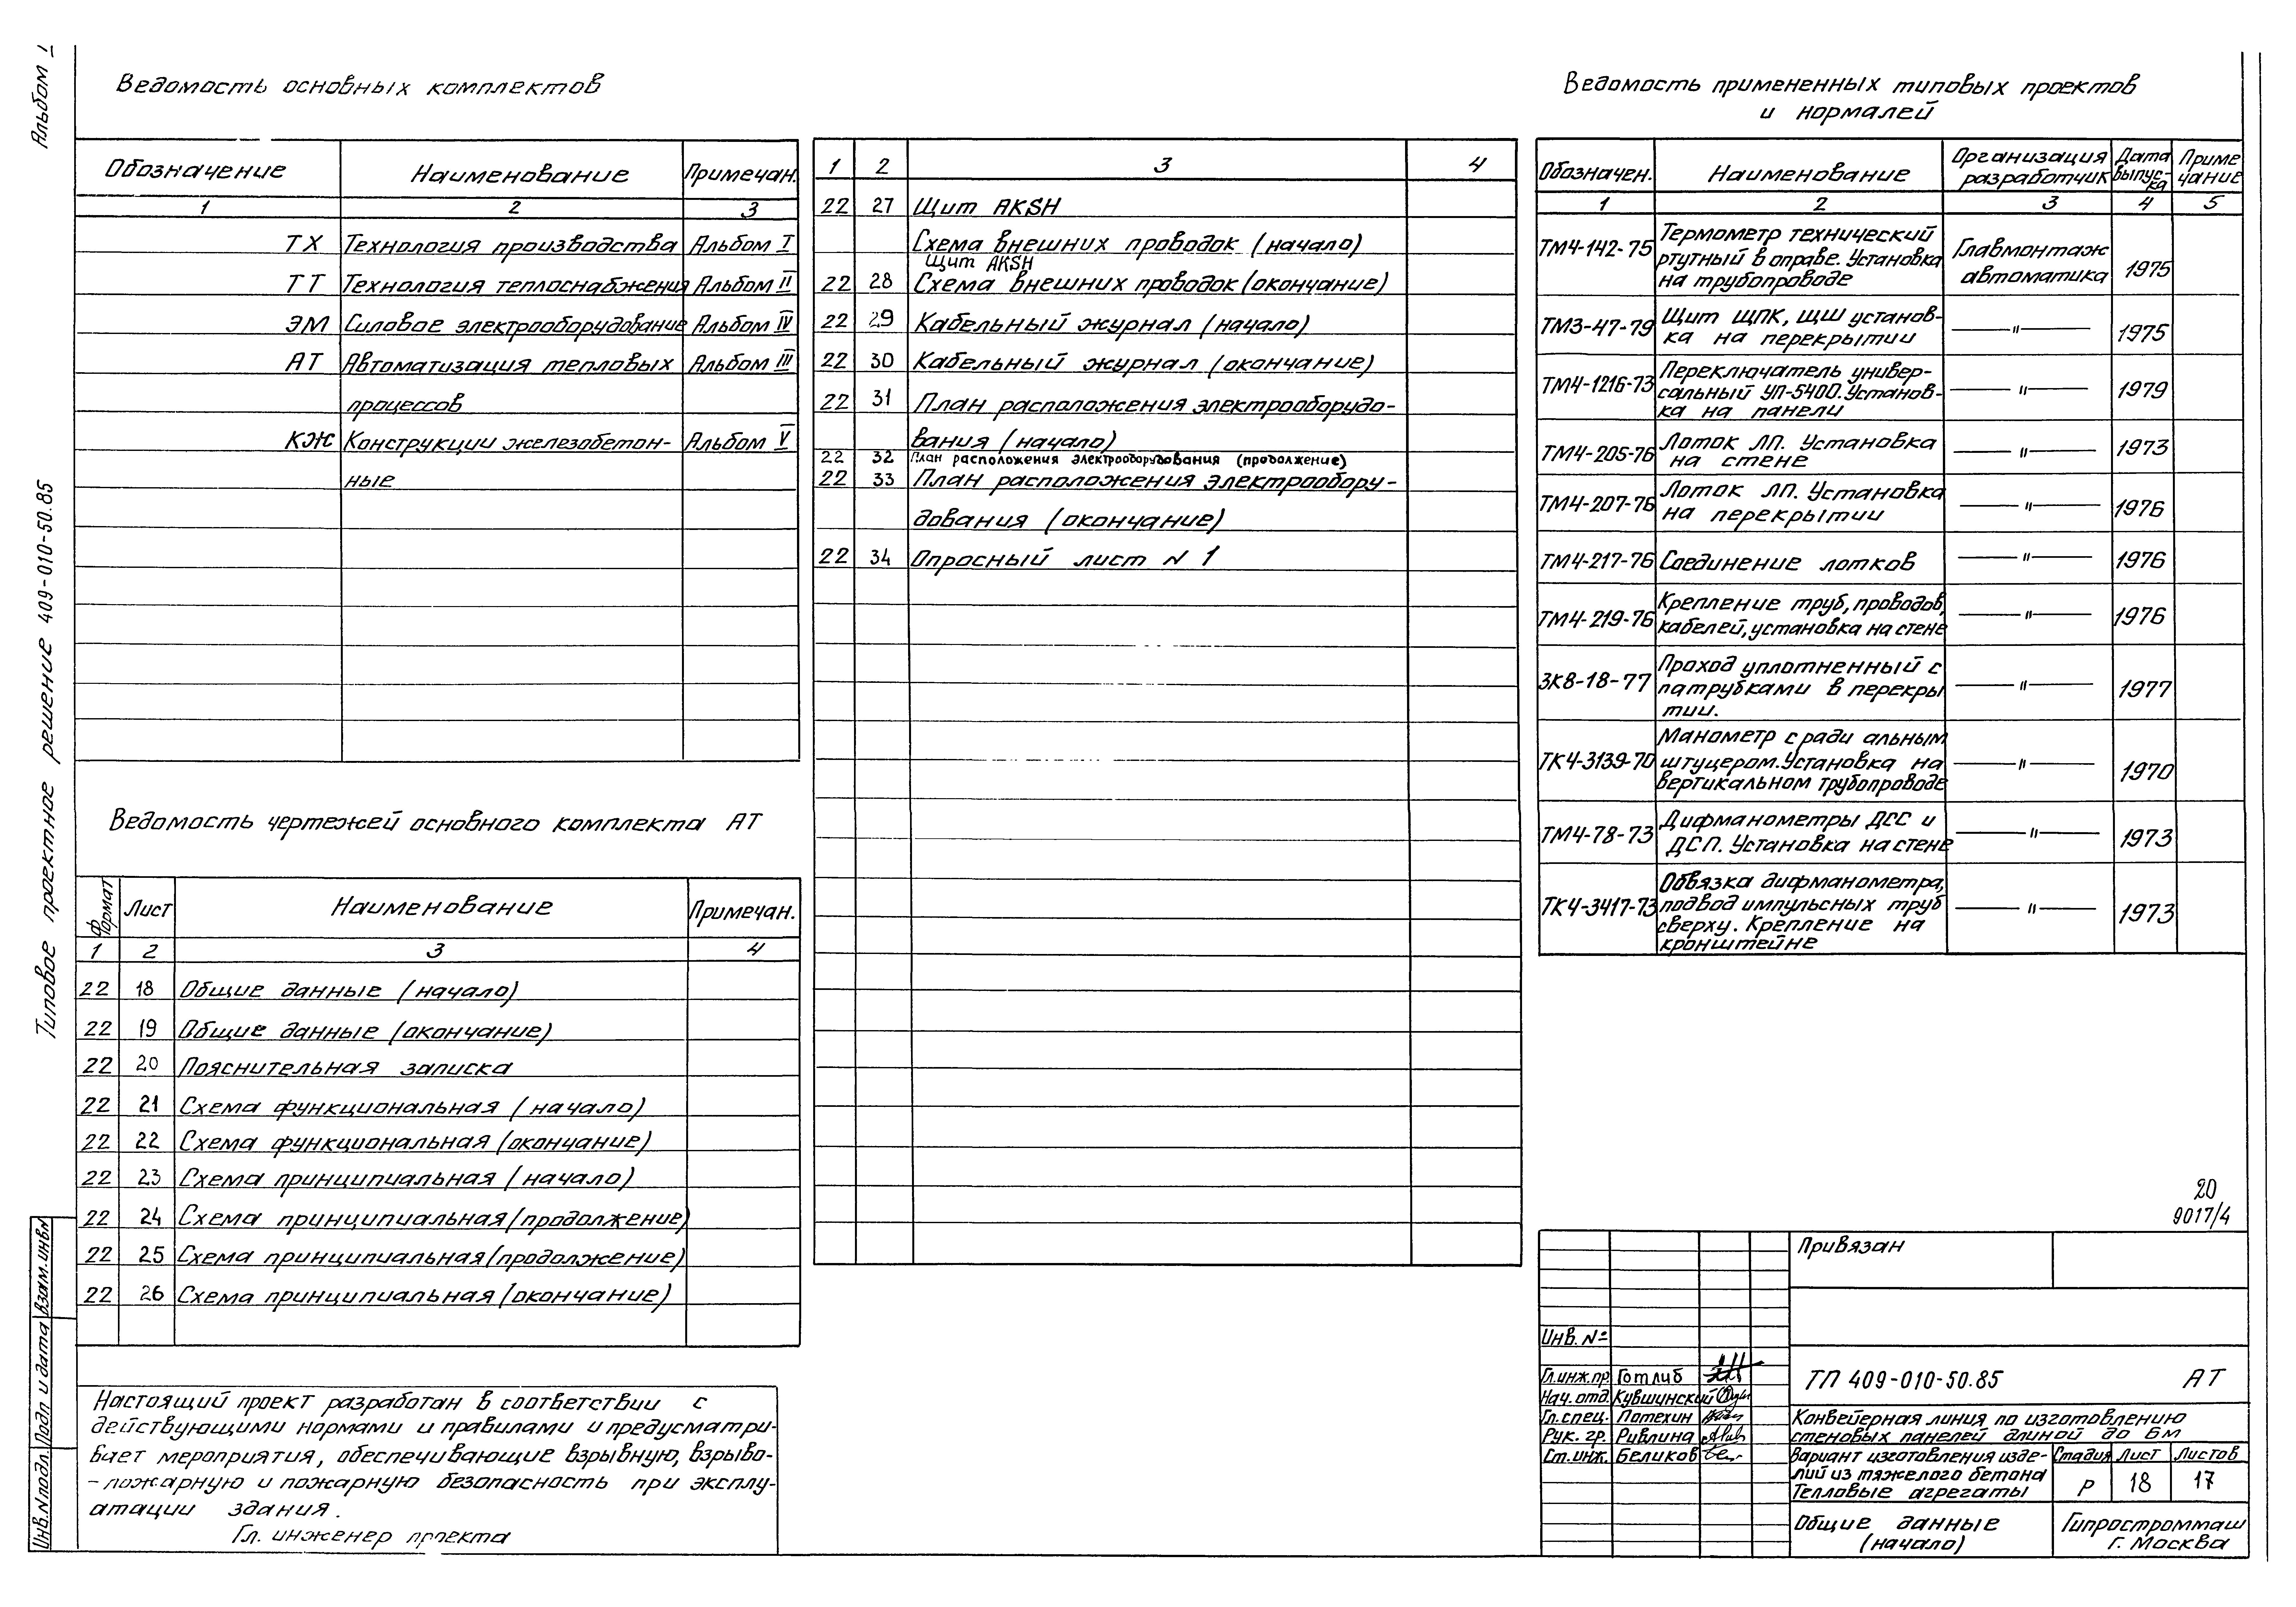 Альбом I
Типовое проектное решение 409-010-50.85
Ведомость основных комплектов
Обозначение Наименование Примечан.
1 2 3
ТХ Технология производства Альбом I
ТТ Технология теплоснабжения Альбом II
ЭМ Силовое электрооборудование Альбом IV
АТ Автоматизация тепловых Альбом III
процессов
КЖ Конструкции железобетон- Альбом V
ные
Ведомость чертежей основного комплекта АТ
Формат Лист Наименование Примечан.
1 2 3 4
22 18 Общие данные (начало)
22 19 Общие данные (окончание)
22 20 Пояснительная записка
22 21 Схема функциональная (начало)
22 22 Схема функциональная (окончание)
22 23 Схема принципиальная (начало)
22 24 Схема принципиальная (продолжение)
22 25 Схема принципиальная (продолжение)
22 26 Схема принципиальная (окончание)
Настоящий проект разработан в соответствии с
действующими нормами и правилами и предусматри-
вает мероприятия, обеспечивающие взрывную, взрыво-
-пожарную и пожарную безопасность при эксплу-
атации здания.
Гл. инженер проекта
1 2 3 4
22 27 Щит AKSH
Схема внешних проводок (начало)
Щит AKSH
22 28 Схема внешних проводок (окончание)
22 29 Кабельный журнал (начало)
22 30 Кабельный журнал (окончание)
22 31 План расположения электрооборудо-
вания (начало)
22 32 План расположения электрооборудования (продолжение)
22 33 План расположения электрообору-
дования (окончание)
22 34 Опросный лист N 1
Ведомость примененных типовых проектов
и нормалей
Обозначен. Наименование Организация разработчик Дата выпус-ка Приме чание
1 2 3 4 5
ТМ4-142-75 Термометр технический
ртутный в оправе. Установка
на трубопроводе
Главмонтаж
автоматика 1975
ТМ3-47-79 Щит ЩПК, ЩШ установ-
ка на перекрытии —"— 1975
ТМ4-1216-73 Переключатель универ-
сальный УП-5400. Установ-
ка на панели —"— 1979
ТМ4-205-76 Лоток ЛП. Установка
на стене —"— 1973
ТМ4-207-76 Лоток ЛП. Установка
на перекрытии —"— 1976
ТМ4-217-76 Соединение лотков —"— 1976
ТМ4-219-76 Крепление труб, проводов,
кабелей, установка на стене —"— 1976
ЗК8-18-77 Проход уплотненный с
патрубками в перекры
тии. —"— 1977
ТК4-3139-70 Манометр с ради альным
штуцером. Установка на
вертикальном трубопроводе —"— 1970
ТМ4-78-73 Дифманометры ДСС и
ДСП. Установка на стене —"— 1973
ТК4-3417-73 Обвязка дифманометра,
подвод импульсных труб
сверху. Крепление на
кронштейне —"— 1973
20
9017/4
Привязан
Инв. №
Гл.инж.пр. Готлиб
Нач. отд. Кувшинский
Гл. спец. Потехин
Рук. гр. Ривлина
Ст. инж. Беликов
ТП 409-010-50.85 АТ
Конвейерная линия по изготовлению
стеновых панелей длиной до 6м
Вариант изготовления изде-
лий из тяжелого бетона
Тепловые агрегаты
Стадия Лист Листов
Р 18 17
Общие данные
(начало)
Гипростроммаш
г. Москва
Инв.N подл. Подп и дата Взам.инвN